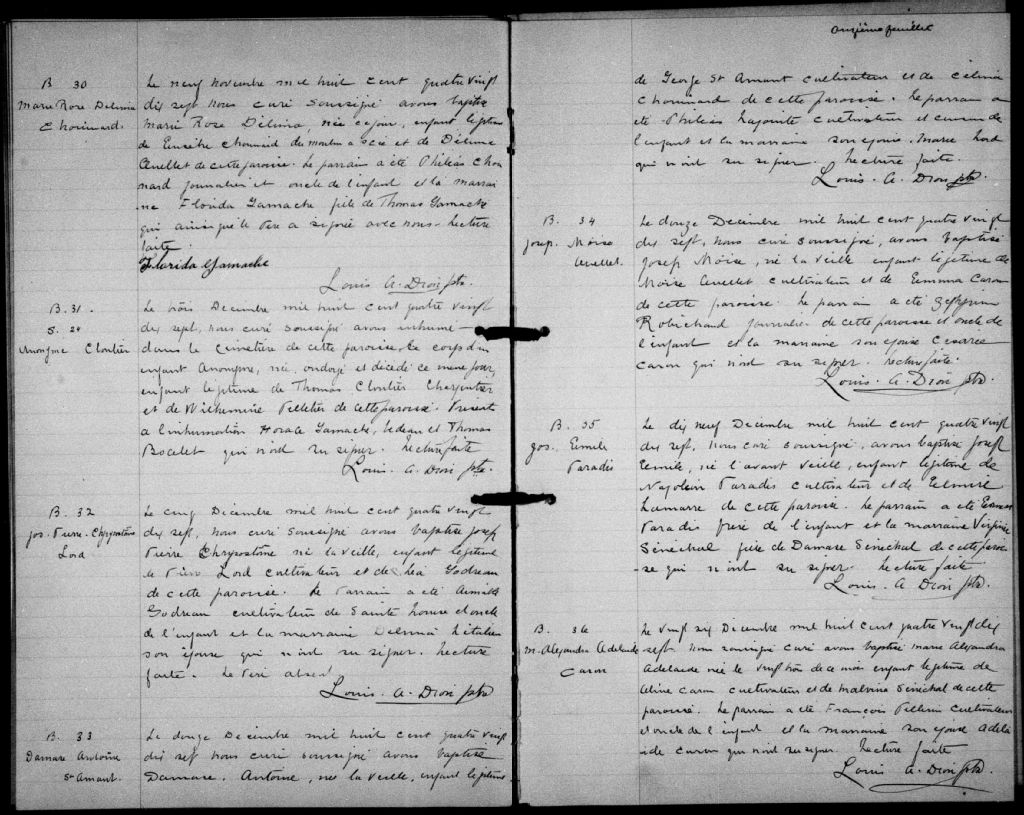 B 30
Marie Rose Delima
Chouinard.
Le neuf novembre mil huit cent quatre vingt
dix sept nous curé soussigné avons baptisé
Marie Rose Délima, née ce jour, enfant légitime
de Eusèbe Chouinard du moulin à scie et de Délima
Ouellet de cette paroisse. Le parrain a été Philéas Choui
nard journalier et oncle de l'enfant et la marrai
ne Florida Gamache fille de Thomas Gamache
qui ainsi que le Père a signé avec nous. Lecture
faite.
Florida Gamache
Louis A. Dion ptre.
B. 31.
S. 24
Anonyme Cloutier
Le trois Decembre mil huit cent quatre vingt
dix sept, nous curé soussigné avons inhumé
dans le cimetière de cette paroisse, Le corps d'un
enfant Anonyme, né, ondoyé et décédé ce meme jour,
enfant légitime de Thomas Cloutier Charpentier
et de Wilhemine Pelletier de cette paroisse. Present
a l'inhumation Horace Gamache, bedeau et Thomas
qui n'ont su signer. Lecture faite
Louis. A. Dion ptre.
B. 32
Jos. Pierre. Chrysostôme
Lord
Le cinq Décembre mil huit cent quatre vingt
dix sept, nous curé soussigné avons baptisé Josep
Pierre Chrysostôme né la veille, enfant légitime
de Pierre Lord cultivateur et de Léa Godreau
de cette paroisse. Le Parrain a été Aimable
Godreau cultivateur de Sainte Louise et oncle
de l'enfant et la marraine Delima
son épouse qui n'ont su signer. Lecture
faite. Le Père absent
Louis. A. Dion ptre
B. 33
Damase Antoine
St Amant.
Le douze Decembre mil huit cent quatre vingt
dix sept nous curé soussigné avons baptisé
Damase. Antoine, né la veille, enfant légitime
Onzième feuillet
de George St Amant cultivateur et de Célina
Chouinard de cette paroisse. Le parrain a
été Philéas Lajointe cultivateur et cousin de
l'enfant et la marraine son épouse. Marie Lord
qui n'ont su signer. Lecture faite.
Louis. A. Dion ptre.
B. 34
Josep. Moïse
Ouellet.
Le douze Decembre mil huit cent quatre vingt
dix sept, nous curé soussigné, avons baptisé
Josep Moïse, né la veille enfant légitime de
Moïse Ouellet cultivateur et de Emma Caron
de cette paroisse. Le parrain a été Zéphirin
Robichaud journalier de cette paroisse et oncle de
l'enfant et la marraine son épouse Césarée
Caron qui n'ont su signer. Lecture faite.
Louis. A. Dion ptre.
B. 35
Jos. Emile
Paradis
Le dix neuf Décembre mil huit cent quatre vingt
dix sept, nous curé soussigné, avons baptisé Josep
Emile, né l'avant veille, enfant légitime de
Napoléon Paradis cultivateur et de Elmire
Lamarre de cette paroisse. Le parrain a été
Paradis frère de l'enfant et la marraine Virginie
Sénéchal fille de Damase Sénéchal de cette parois
-se qui n'ont su signer. Lecture faite
Louis A Dion ptre.
B. 36
M. Alexandra Adelaide
Caron
Le vingt six Décembre mil huit cent quatre vingt dix
sept. Nous soussigné curé avons baptisé marie Alexandra
Adelaide née le vingt trois de ce mois enfant légitime de
Caron cultivateur et de Malvina Sénéchal de cette
paroisse. Le parrain a été François Pellerin Cultivateur
et oncle de l'enfant et la marraine son épouse Adela
ide Caron qui n'ont su signer. Lecture faite
Louis A. Dion ptre.